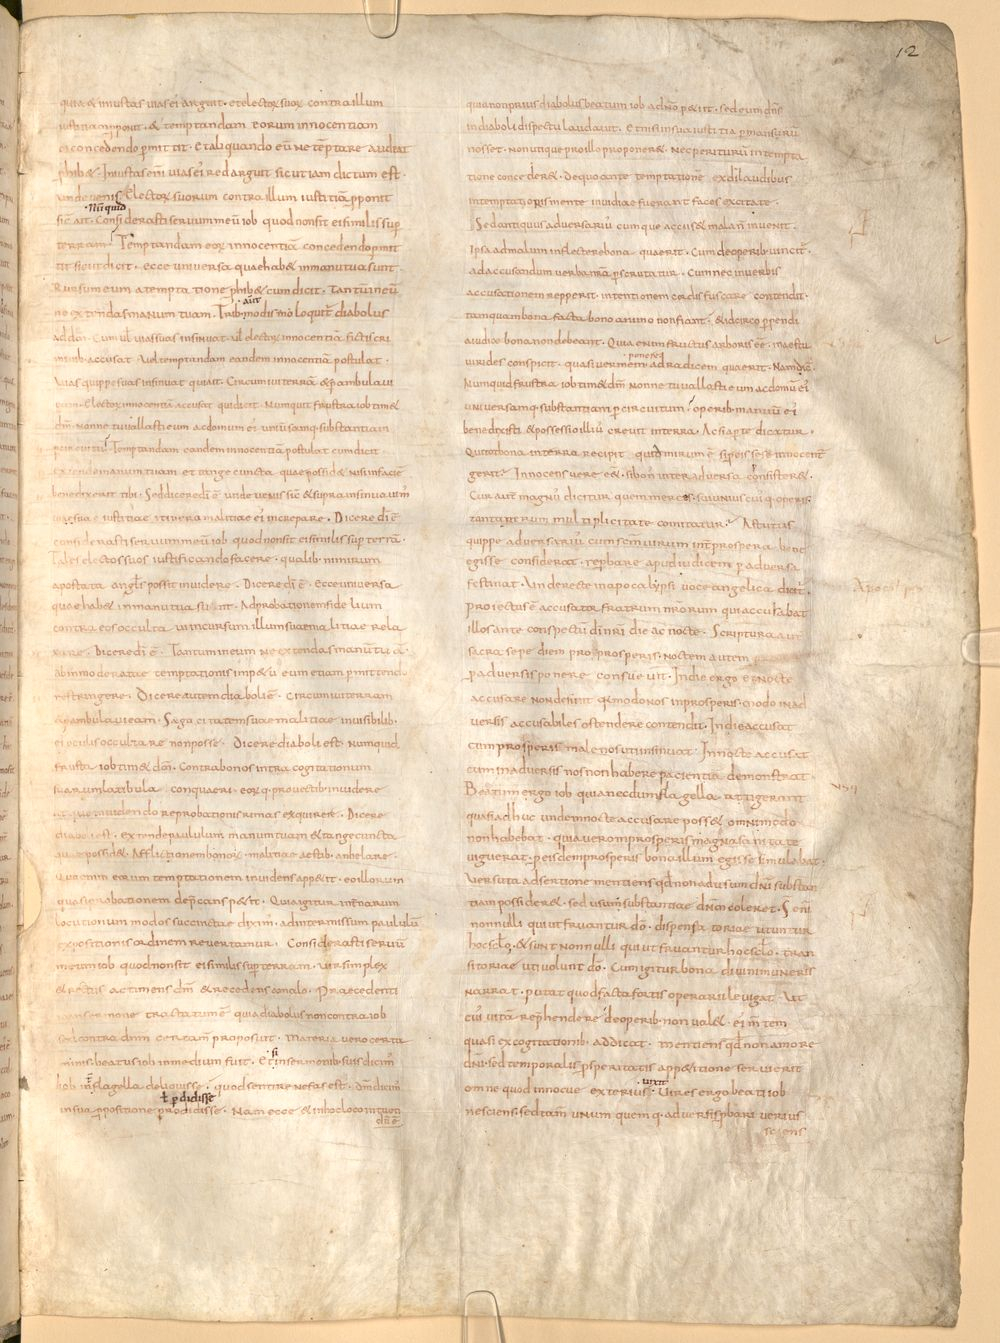 12
quia & iniustas uias ei arguit · et electoꝝ suoꝝ contra illum
iustitiam pponit · & temptandam eorum innocentiam
ei concedendo ꝑmittit · Et aliquando eū ne tēptare audeat
ꝓhib& · Iniustas eni uias ei redarguit sicut iam dictum est ·
unde uenis · Electoꝝ suorum contra illum iustitiā ꝓponit
Nūquid
sic ait · Considerasti seruum meū iob quod non sit ei similis suꝑ
terram · Temptandam eoꝝ innocentiā concedendo ꝑmit
tit sicut dicit · ecce uniuersa quae hab& in manu tua sunt ·
Rursum eum a temptatione ꝓhib& cum dicit · Tantū in eū
aut
ne extendas manum tuam · Trib· modis loquit̄ diabolus
ad dn̄m · Cum ul uias suas insinuat · ul electoꝝ innocentiā fictis cri
minib· accusat · Vel temptandam eandem innocentiā postulat ·
Vias quippe suas insinuat qui ait · Circumiui terrā & ꝑambulaui
eam · Electoꝝ innocentiā accusat qui dicit · Numquit frustra iob tim&
dm̄ · Nonne tu uallasti eum ac domum ei uniūsamq· substantiam
ꝑ circuitū · Temptandam eandem innocentiā postulat cum dicit ·
extende manum tuam et tange cuncta quae possid& nisi in faciē
benedixerit tibi · Sed dicere di ē · unde uenis
suae iustitiae itinera malitiae ei increpare · Dicere di ē
considerasti seruum meū iob quod non sit ei similis suꝑ terrā ·
Tales electos suos iustificando facere · qualib· nimirum
apostata angls possit inuidere · Dicere di ē · Ecce uniuersa
quae hab& in manu tua sunt · Ad probationem fidelium
contra eos occulta ui incursum illum suae malitiae rela
xare · Dicere di ē · Tantum in eum ne extendas manū tuā ·
ab immoderatae temptationis imp&u eum etiam ꝑmittendo
restringere · Dicere autem diaboli ē · Circumiui terram
& ꝑambulaui eam · Sagacitatem suae malitiae inuisibilib·
ei oculis occultare non posse · Dicere diaboli est · Numquid
frustra iob tim& dm̄ · Contra bonos intra cogitationum
suarum latibula conquaeri · eoꝝq· prouectib· inuidere
atque inuidendo reprobationis rimas exquirere · Dicere
diaboli est · extende paululum manum tuam & tange cuncta
quae possid& · Afflictionem bonoꝝ malitiae aestib· anhelare ·
Quoniam eorum temptationem inuidens app&it · eo illorum
quasi probationem dep̄cans p&it · Quia igitur internarum
locutionum modos succincte diximꝰ · ad intermissum paululū
expositionis ordinem reuertamur · Considerasti seruū
meum iob quod non sit ei similis suꝑ terram · Vir simplex
& rectus ac timens dm̄ & recedens a malo · Praecedenti
iam sermone tractatum ē quia diabolus non contra iob
sed contra dm̄ certamꝰ proposuit · Materia uero certa
si
minis beatus iob in medium fuit · Et in sermonib· suis dicimꝰ
iob int̄ flagella deliquisse · quod sentire nefas est · Dm̄ dicimꝰ
ł ꝑdidisse
in sua ꝓpositione prodidisse · Nam ecce & in hoc loco intuen
dū ē
quia non prius diabolus beatum iob a dn̄o p&iit · sed eum dn̄s
in diaboli dispectu laudauit · Et nisi in sua iustitia ꝑmansurū
nosset · Non utique pro illo proponere& · Nec periturū in tempta
tione concedere& · De quo ante temptationē ex di laudibus
in temptatoris mente inuidiae fuerant faces excitatae ·
Sed antiquus aduersariū cum que accus& malan̄ inuenit ·
Ipsa ad malum inflectere bona quaerit · Cum de operib· uincit̄ ·
ad accusandum uerba nr̄a ꝑscrutatur · Cum nec in uerbis
accusationem repperit · intentionem cordis fuscare contendit ·
tamquam bona facta bono animo non fiant · & idcirco ꝑpendi
a iudice bona non debeant · Quia enim fructus arboris eē in aestu
ponere
uirides conspicit · quasi uermem ad radicem quaerit · Nam dicit̄ ·
Numquid frustra iob tim& dm̄ Nonne tu uallasti eum ac domū ei
uniuersamq· substantiam ꝑ circuitum · operib· manuū ei
benedixisti & possessio illiū creuit in terra · Ac si aꝑte dicatur ·
Qui tot bona in terra recipit · quid mirum ē si ꝑ eis se se innocent̄
gerit · Innocens uere e& · si bonꝰ inter aduersa consister& ·
Cur aut̄ magnū dicitur quem merces sui uniuscuiꝰq· operis
tantarerum multiplicitate comitatur · Astutus
quippe aduersariū cum scm̄ uirum int̄ prospera bene
egisse considerat · reꝓbare apud iudicem ꝑ aduersa
festinat · Vnde recte in apocalypsi uoce angelica dicit̄ ·
Apocalyp
Proiectus ē accusator fratrum nr̄orum qui accusabat
illos ante conspectū di nr̄i die ac nocte · Scriptura aut̄
sacra sepe diem pro prosperis · noctem autem
ꝑ aduersis ponere consueuit · In die ergo & nocte
accusare non desinit quia modo nos in prosperis · modo in ad
uersis accusabiles ostendere contendit · In die accusat
cum prosperis male nos uti insinuat · In nocte accusat
cum in aduersis nos non habere pacientiā demonstrat ·
Beatum ergo iob quia necdum flagella tattigerant
quasi adhuc unde in nocte accusare poss& omnimodo
non habebat · quia uero in prosperis magna sanctitate
uiguerat · ꝑ eisdem prosperis bona illum egisse simulabat ·
Versuta adsertione mentiens qd̄ non ad usum dn̄i substan
tiam possider& · sed usum substantiae dn̄m coleret · S eni
nonnulli qui ut fruantur do · dispensatoriae utuntur
hoc sclo · & sunt nonnulli qui ut fruantur hoc sclo · tran
sitoriae uti uolunt do · Cum igitur bona diuini muneris
narrat · putat quod facta fortis operarii leuigat · Vt
cuiꝰ uitā rep̄hendere de operib· non ual& · ei mentem
quasi ex cogitationib· addicat · mentiens qd̄ non amore
dn̄i · sed temporalis ꝑsperitatis app&itione seruierit
uixit
omne quod innocue exterius · Vires ergo beati iob
nesciens · sed tam unum quemq· aduersis ꝓbari uerius
sciens